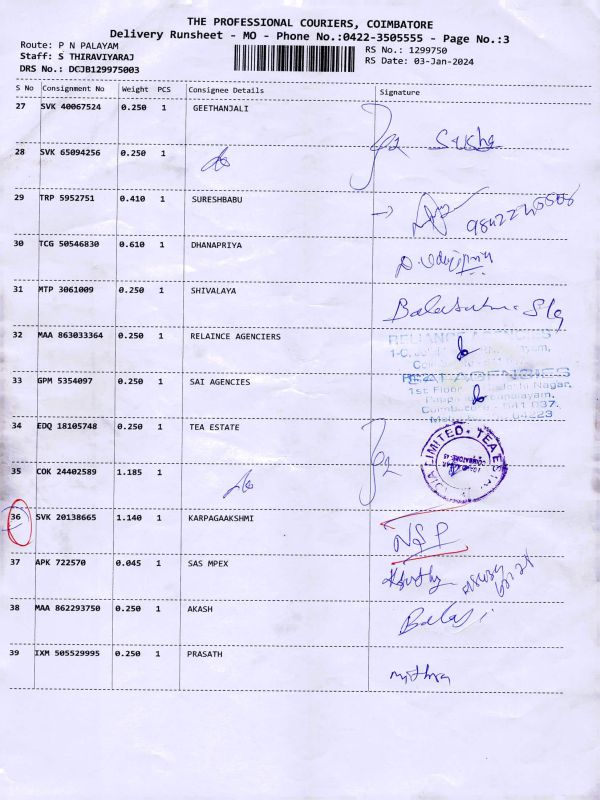 THE PROFESSIONAL COURIERS, COIMBATORE
Delivery Runsheet - MO - Phone No.:0422-3505555 - Page No.:3
Route: P N PALAYAM RS No.: 1299750
Staff: S THIRAVIYARAJ RS Date: 03-Jan-2024
DRS No.: DCJB129975003
S No Consignment No Weight PCS Consignee Details Signature
27 SVK 40067524 0.250 1 GEETHANJALI
28 SVK 65094256 0.250 1
29 TRP 5952751 0.410 1 SURESHBABU
30 TCG 50546830 0.610 1 DHANAPRIYA
31 MTP 3061009 0.250 1 SHIVALAYA
32 MAA 863033364 0.250 1 RELAINCE AGENCIERS
RELIANCE AGENCIES
33 GPM 5354097 0.250 1 SAI AGENCIES
1st Floor
34 EDQ 18105748 0.250 1 TEA ESTATE
35 COK 24402589 1.185 1
36 SVK 20138665 1.140 1 KARPAGAAKSHMI
37 APK 722570 0.045 1 SAS MPEX
38 MAA 862293750 0.250 1 AKASH Balaji
39 IXM 505529995 0.250 1 PRASATH mithra